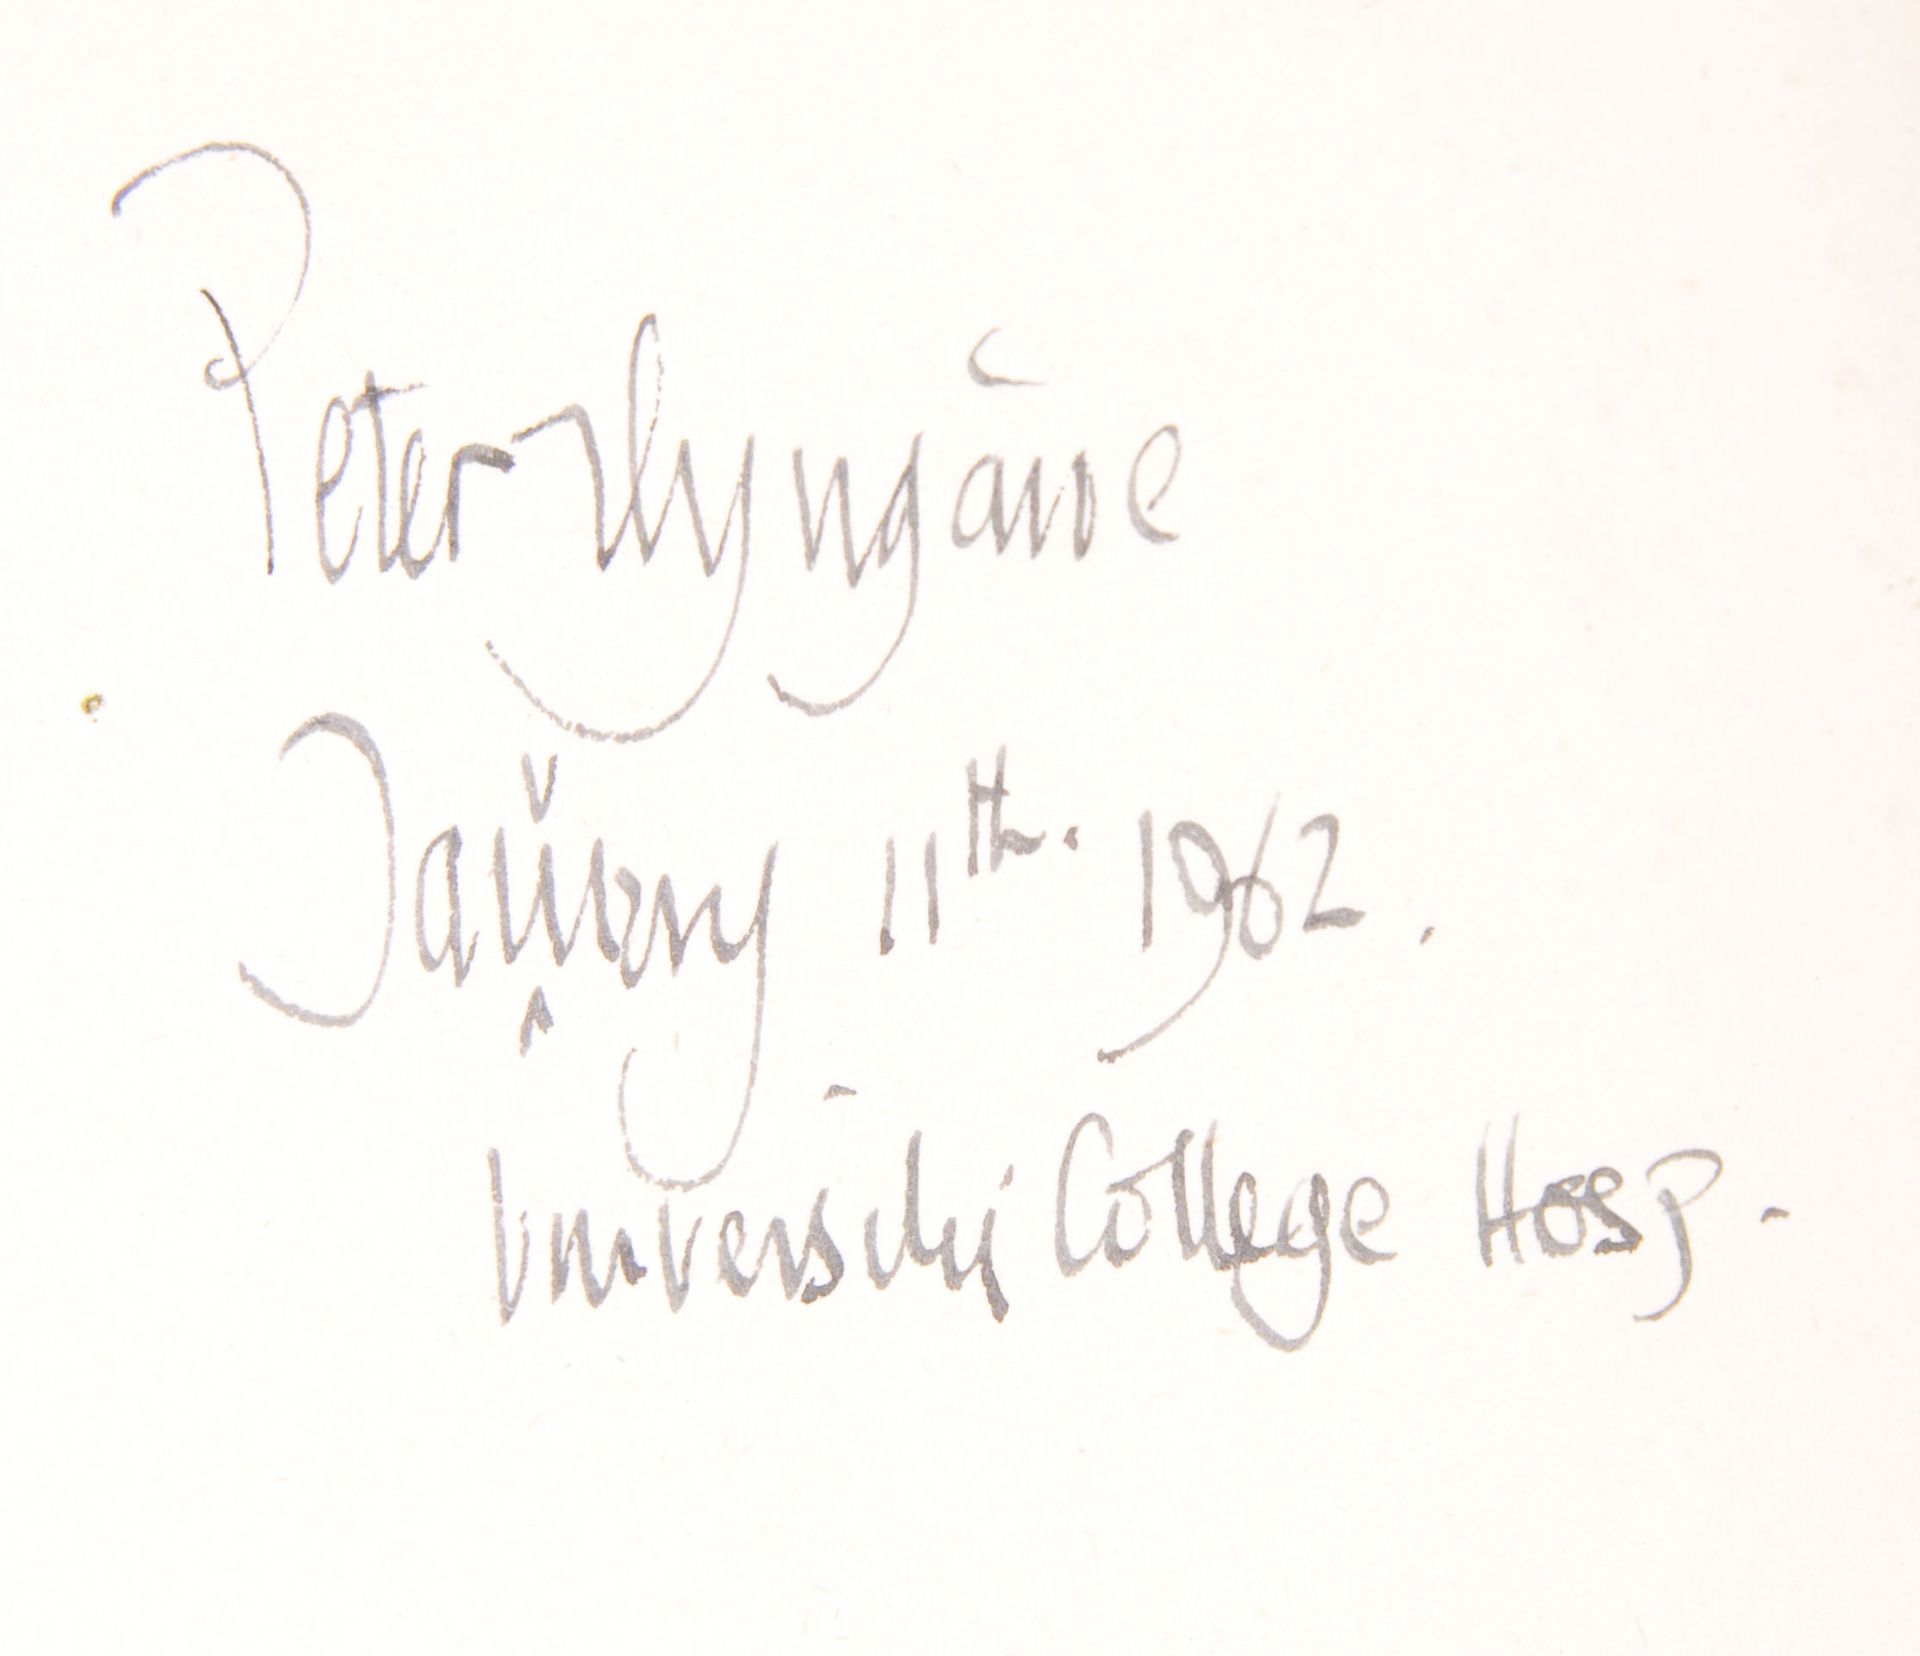 Peter Wyngarde
January 11th. 1962.
University College Hosp.